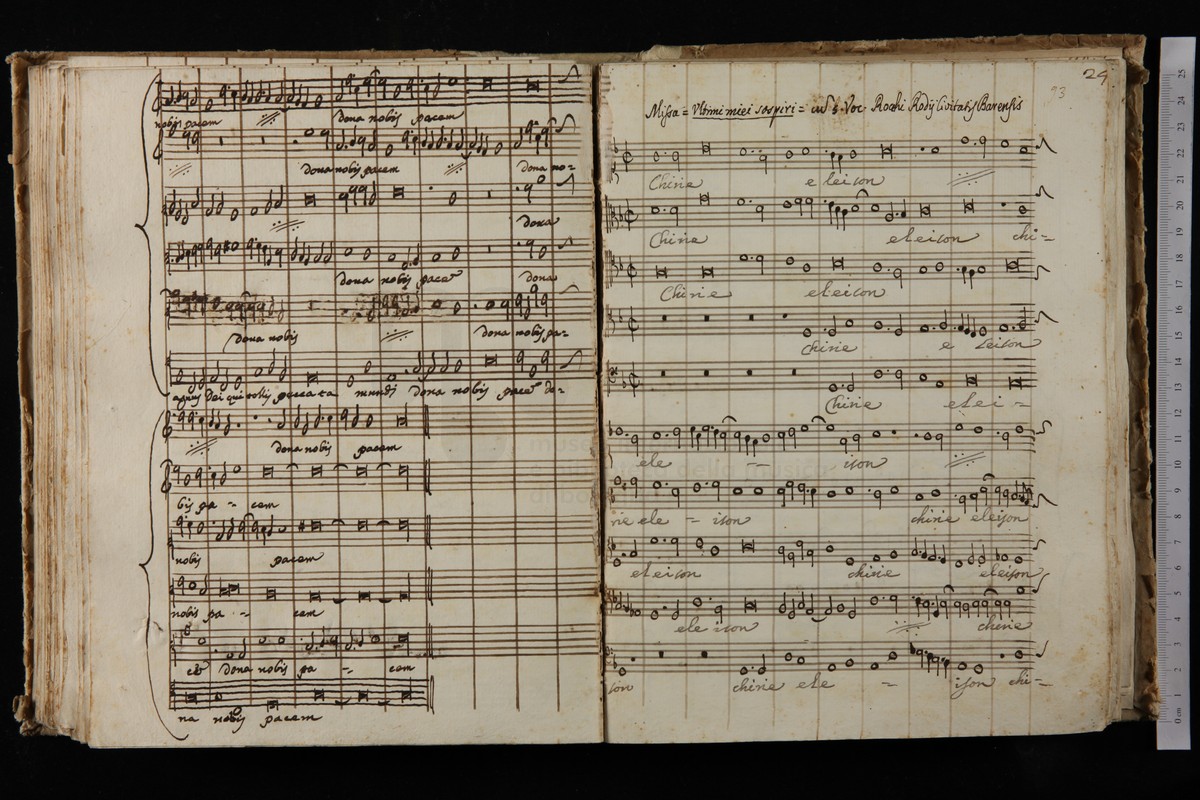 nobis pacem dona nobis pacem
dona nobis pacem dona no-
dona
dona nobis pace dona
dona nobis dona nobis pa-
agnus Dei qui tollis peccata mundi dona nobis pace do-
dona nobis pacem
bis pa - cem
nobis pacem
nobis pa - cem
dona nobis pa - cem
na nobis pacem
29
93
Missa = Ultimi miei sospiri = 5 Voc Rocchi Rodij Civitatis Barensis
Chirie eleison
Chirie eleison chi-
Chirie eleison
chirie e leison
Chirie elei -
ele ison
rie ele - ison chirie eleison
eleison chirie eleison
ele ison chirie
son chirie ele - ison chi-
museo
della musica
di bo
0 cm 1 2 3 4 5 6 7 8 9 10 11 12 13 14 15 16 17 18 19 20 21 22 23 24 25